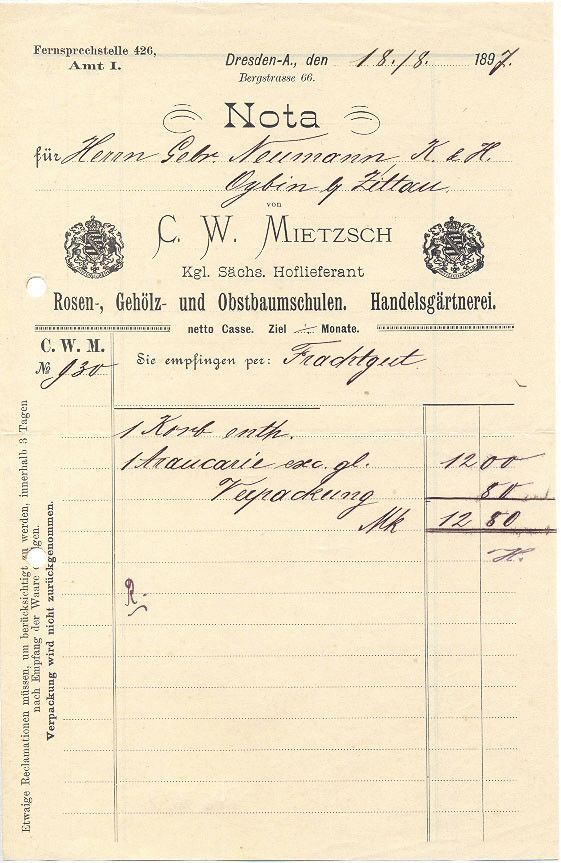 Fernsprechstelle 426,
Amt I.
Dresden-A., den 18./8. 1897.
Bergstrasse 66.
Nota
für Herrn Gebr. Neumann, K. & H.
Oybin b/ Zittau.
von
C. W. MIETZSCH
Kgl. Sächs. Hoflieferant
Rosen-, Gehölz- und Obstbaumschulen. Handelsgärtnerei.
netto Casse. Ziel Monate.
C. W. M.
№ 930
Sie empfingen per: Frachtgut.
1 Korb enth.
1 Araucarie exc. gl. 12 00
Verpackung 80
Mk 12 80
H.
R.
Etwaige Reclamationen müssen, um berücksichtigt zu werden, innerhalb 3 Tagen
nach Empfang der Waare
Verpackung wird nicht zurückgenommen.